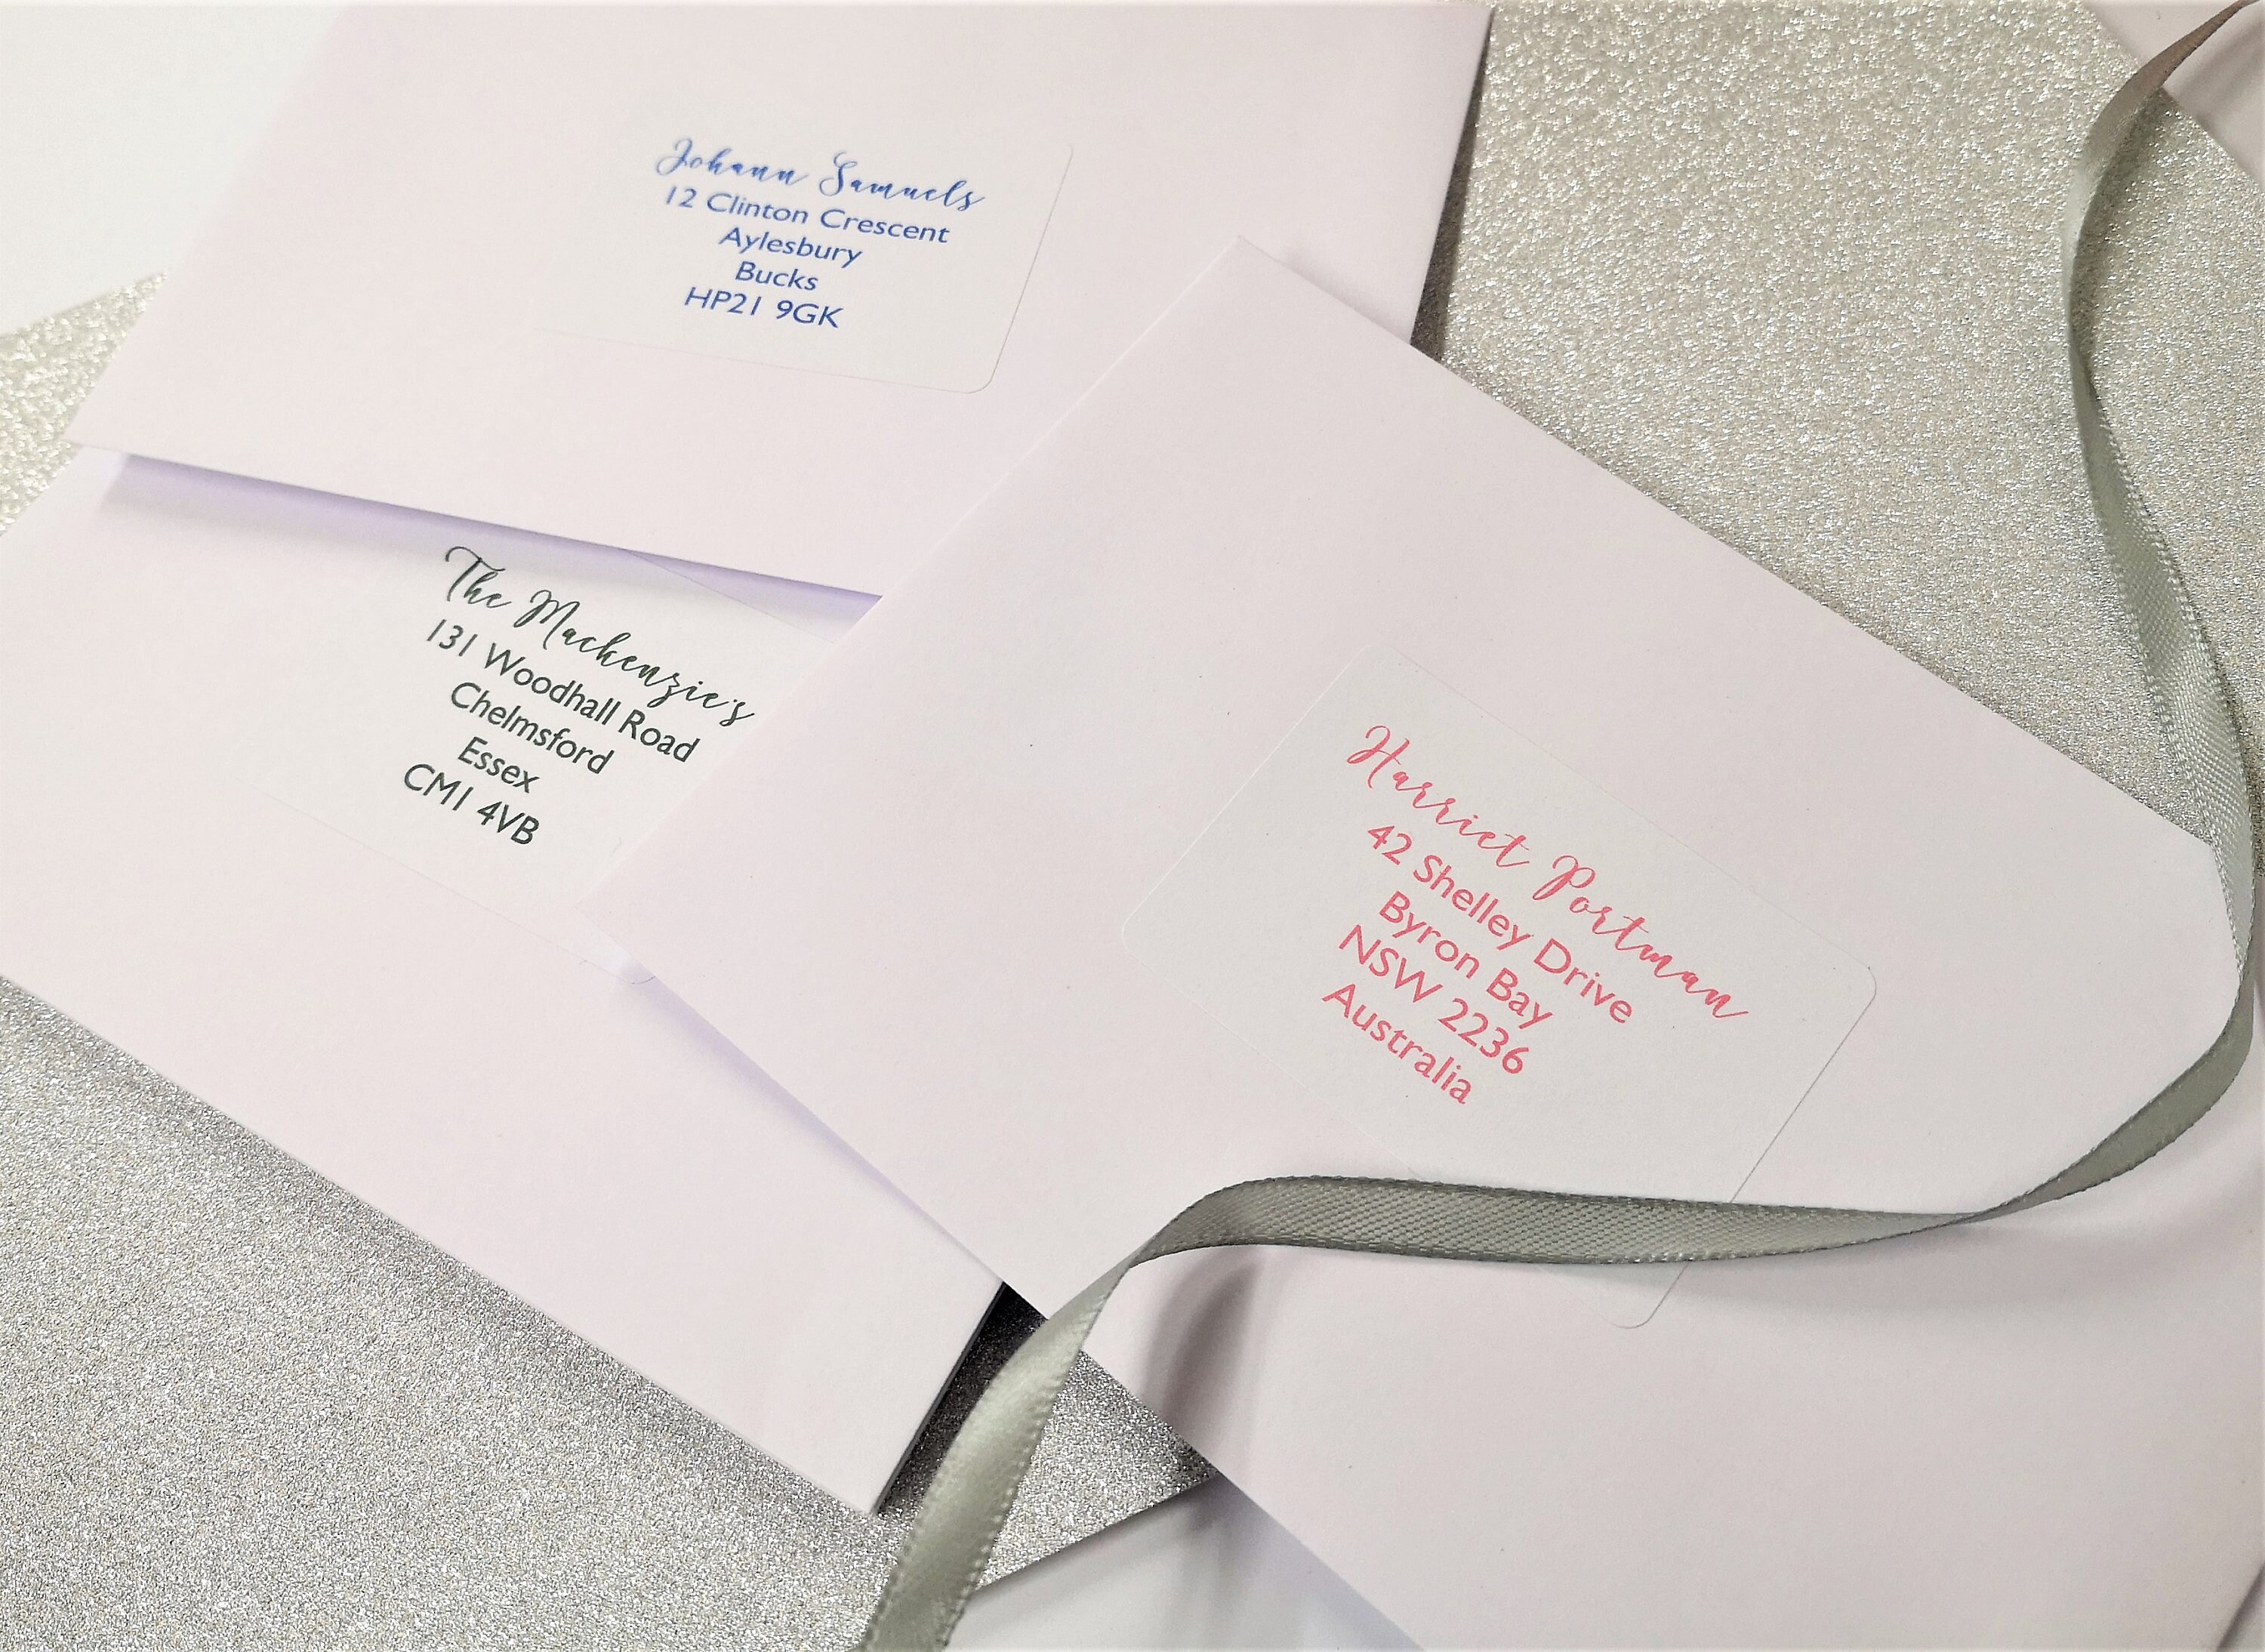 Johann Samuels
12 Clinton Crescent
Aylesbury
Bucks
HP21 9GK
The Mackenzie's
131 Woodhall Road
Chelmsford
Essex
CM1 4VB
Harriet Portman
42 Shelley Drive
Byron Bay
NSW 2236
Australia